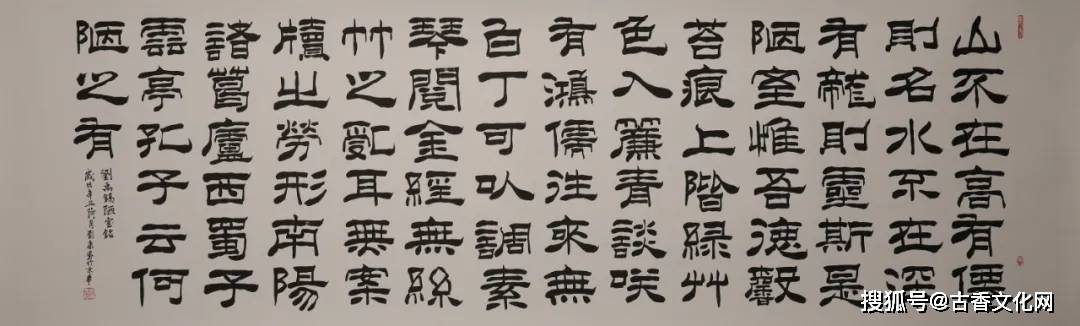 山不在高有僊
則名水不在深
有龍則靈斯是
陋室惟吾德馨
苔痕上階綠艸
色入簾青談咲
有鴻儒往來無
白丁可以調素
琴閱金經無絲
竹之亂耳無案
牘之勞形南陽
諸葛廬西蜀子
雲亭孔子云何
陋之有
劉禹錫陋室銘
搜狐号@古香文化网